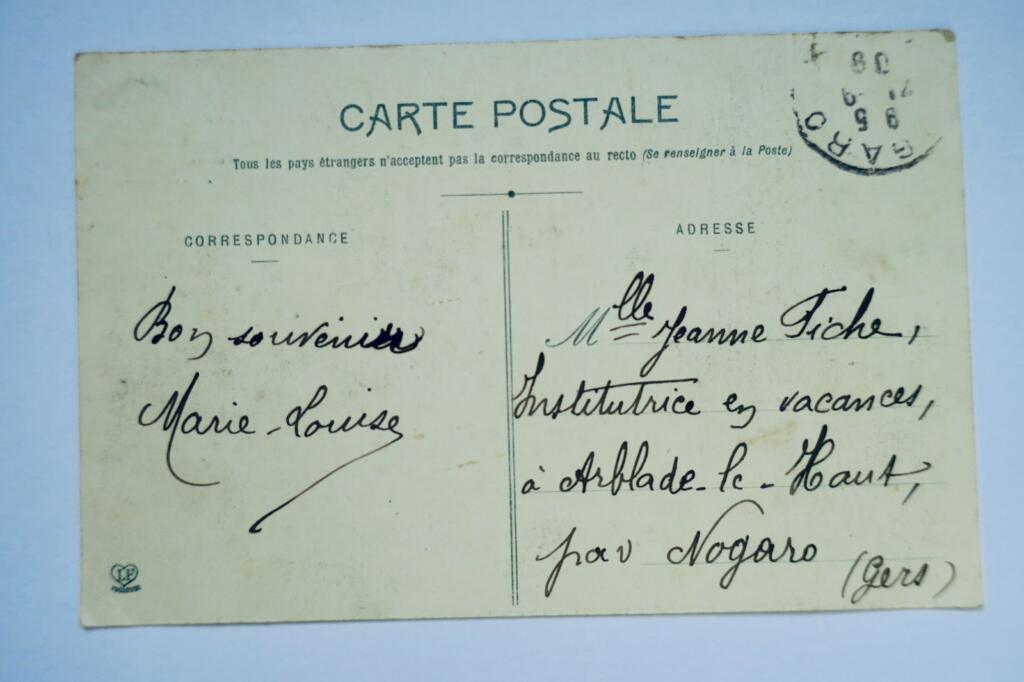 CARTE POSTALE
Tous les pays étrangers n'acceptent pas la correspondance au recto (Se renseigner à la Poste)
CORRESPONDANCE
ADRESSE
Bon souvenir
Marie-Louise
Mlle Jeanne Fiche,
Institutrice en vacances,
à Arblade-le-Haut,
par Nogaro
(Gers)
GARO
9 5
09
LF